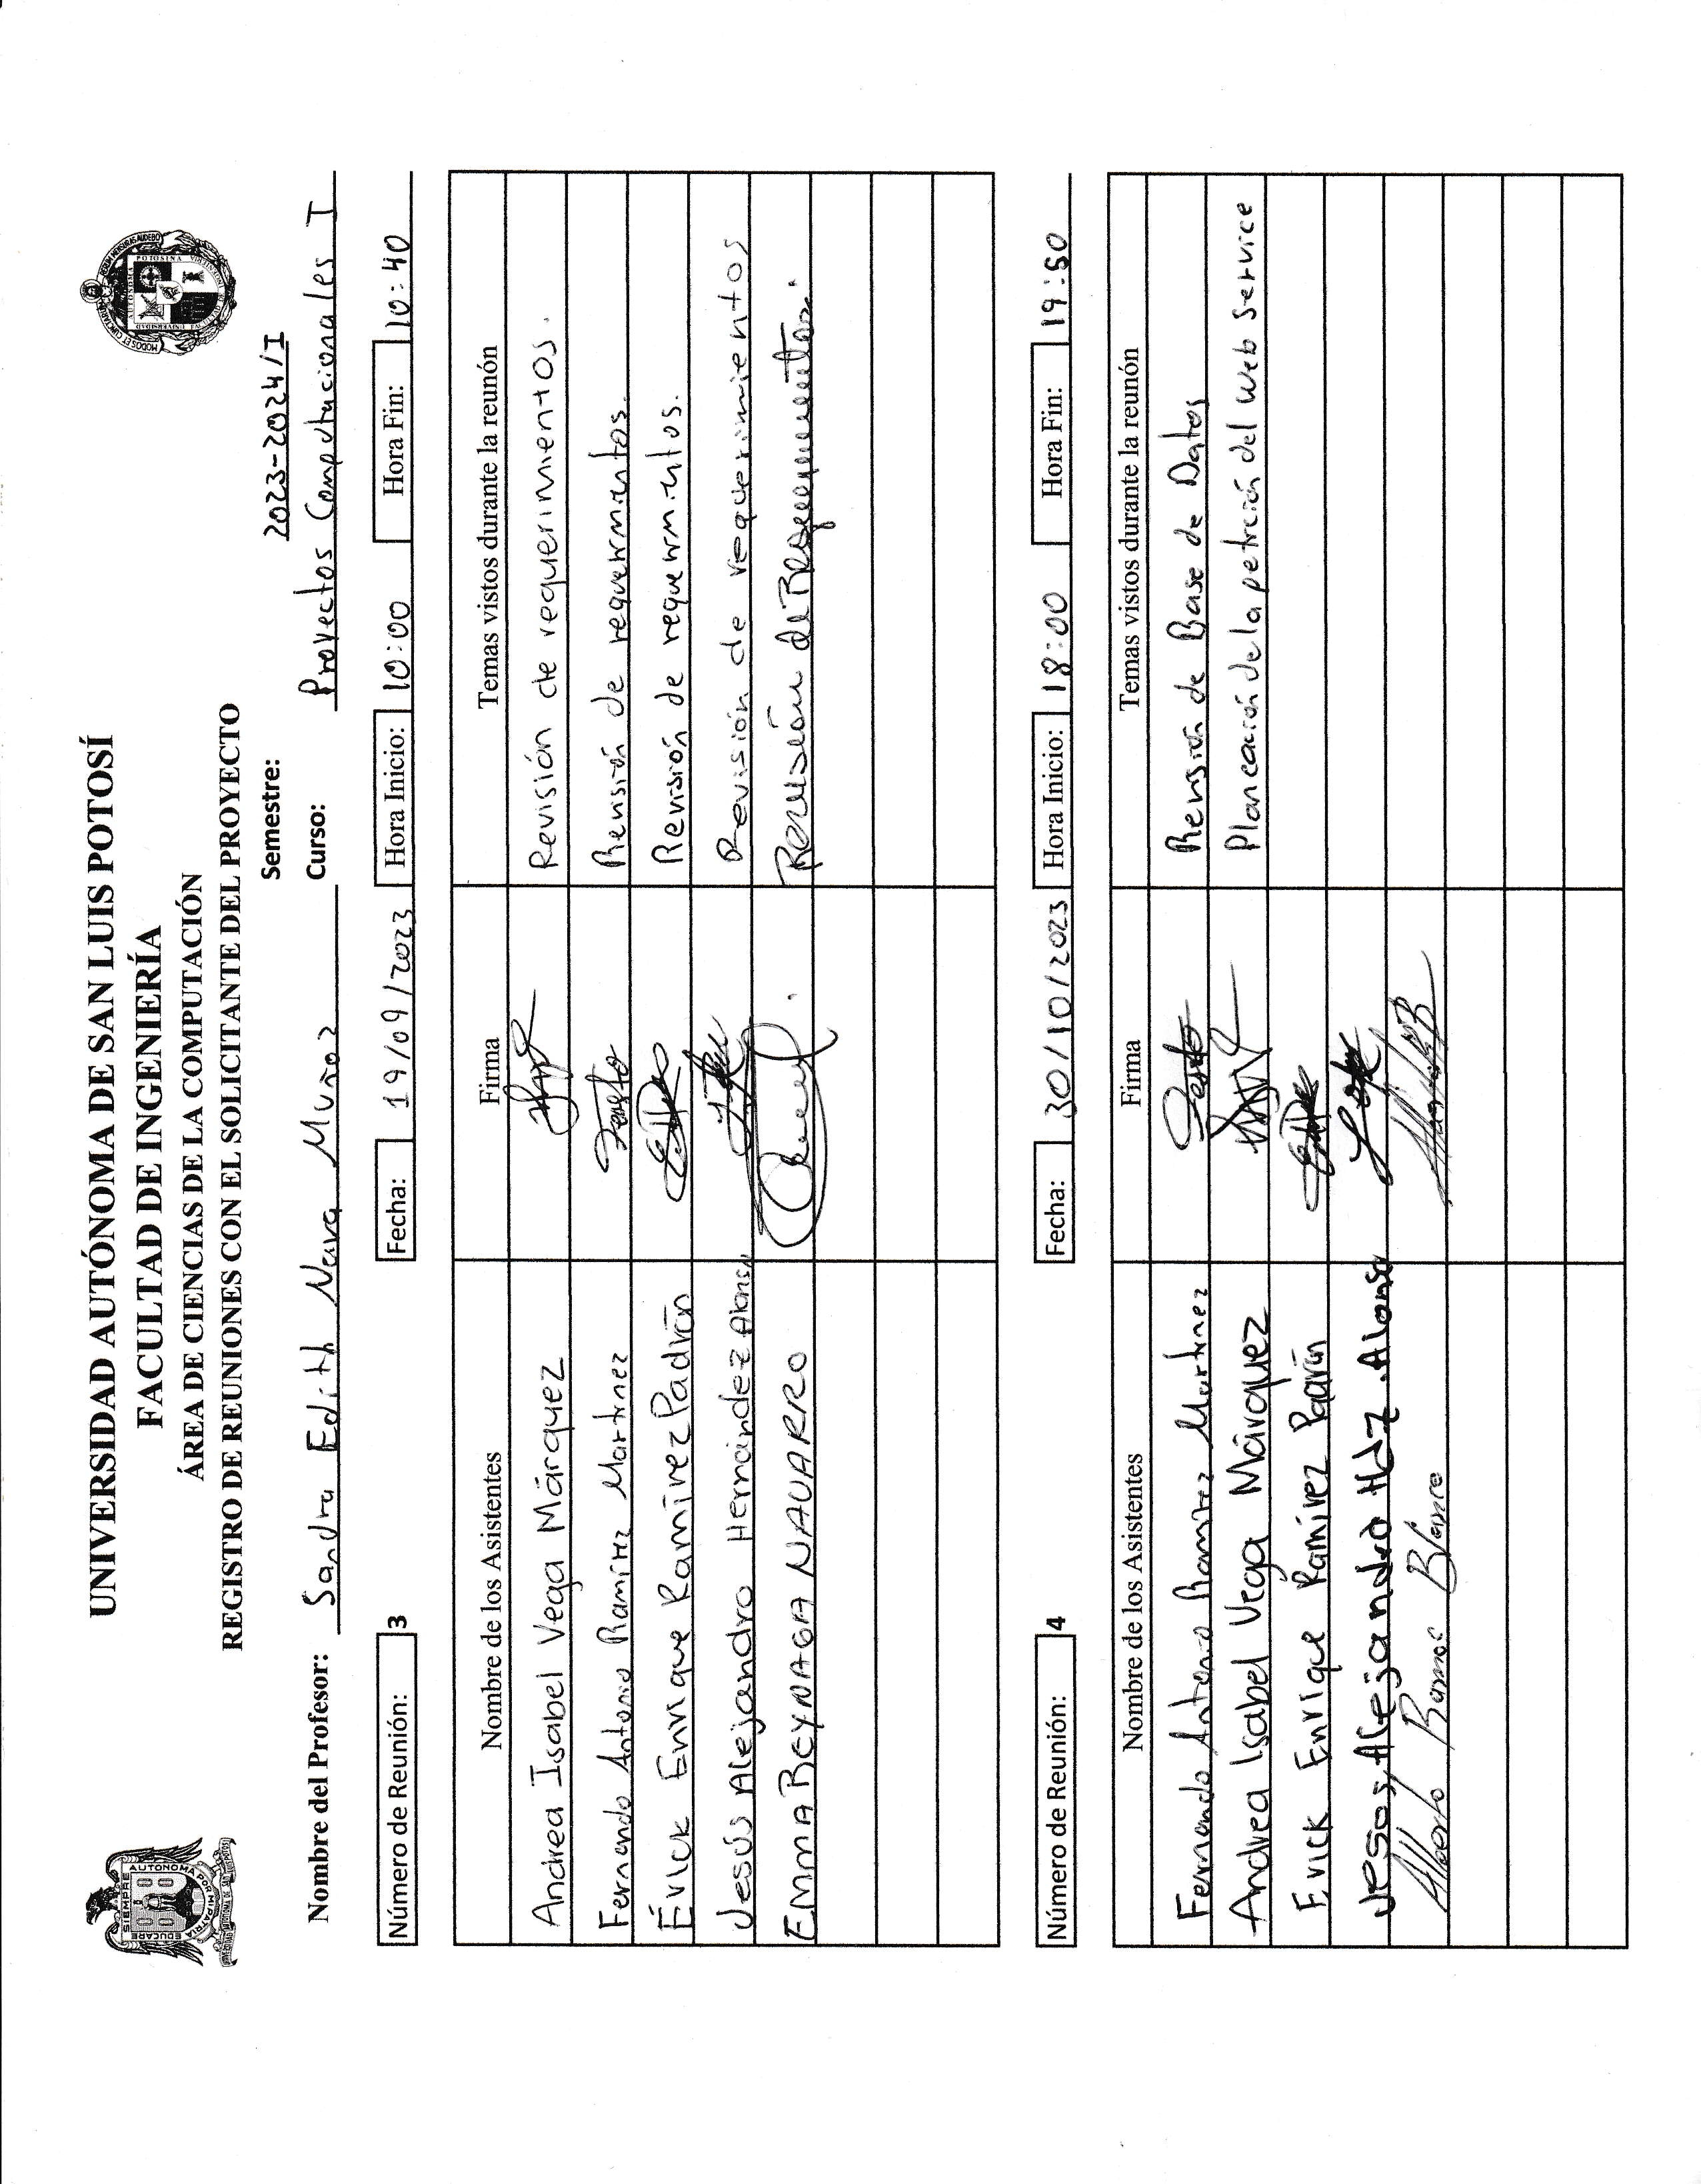 UNIVERSIDAD AUTÓNOMA DE SAN LUIS POTOSÍ
FACULTAD DE INGENIERÍA
ÁREA DE CIENCIAS DE LA COMPUTACIÓN
REGISTRO DE REUNIONES CON EL SOLICITANTE DEL PROYECTO
Semestre: 2023-2024/I
Nombre del Profesor: Sandra Edith Nava Muñoz Curso: Proyectos Computacionales I
Número de Reunión: 3 Fecha: 19/09/2023 Hora Inicio: 10:00 Hora Fin: 10:40
Nombre de los Asistentes Firma Temas vistos durante la reunón
Andrea Isabel Vega Márquez Revisión de requerimientos.
Fernando Antonio Ramírez Martínez Revisión de requerimientos.
Érick Enrique Ramírez Padrón Revisión de requerimientos.
Jesús Alejandro Hernández Alonso Revisión de requerimientos
EMMA REYNAGA NAVARRO Revisión de Requerimientos.
Número de Reunión: 4 Fecha: 30/10/2023 Hora Inicio: 18:00 Hora Fin: 19:50
Nombre de los Asistentes Firma Temas vistos durante la reunón
Fernando Antonio Ramírez Martínez Revisión de Base de Datos
Andrea Isabel Vega Márquez Planeación de la petición del web service
Erick Enrique Ramírez Padrón
Jesús Alejandro Hdz. Alonso
Alberto Ramos Blanco